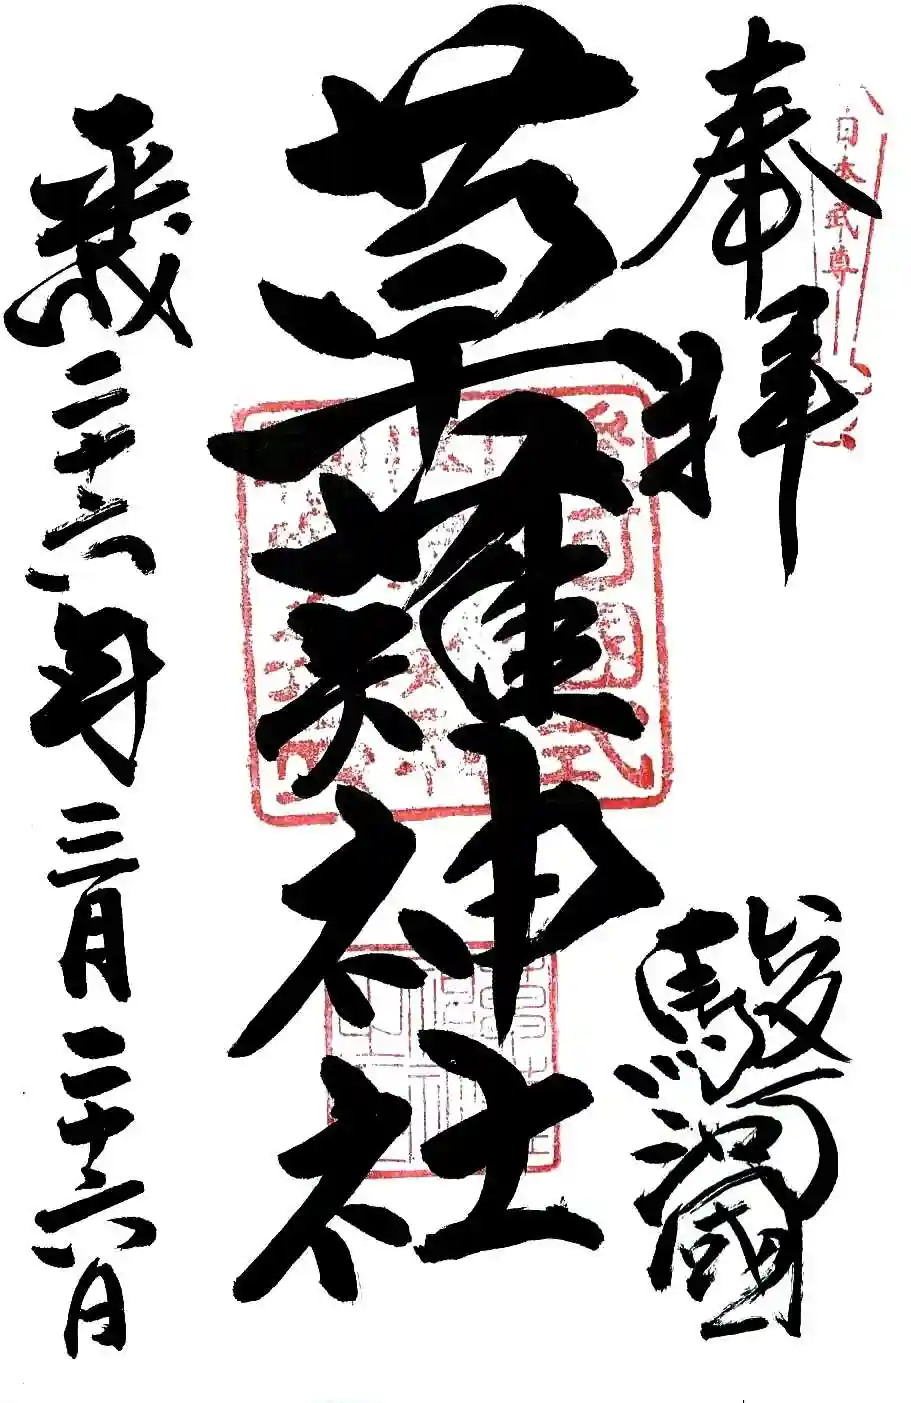 日本武尊
奉拝
駿河國
草薙神社
平成二十六年三月二十六日